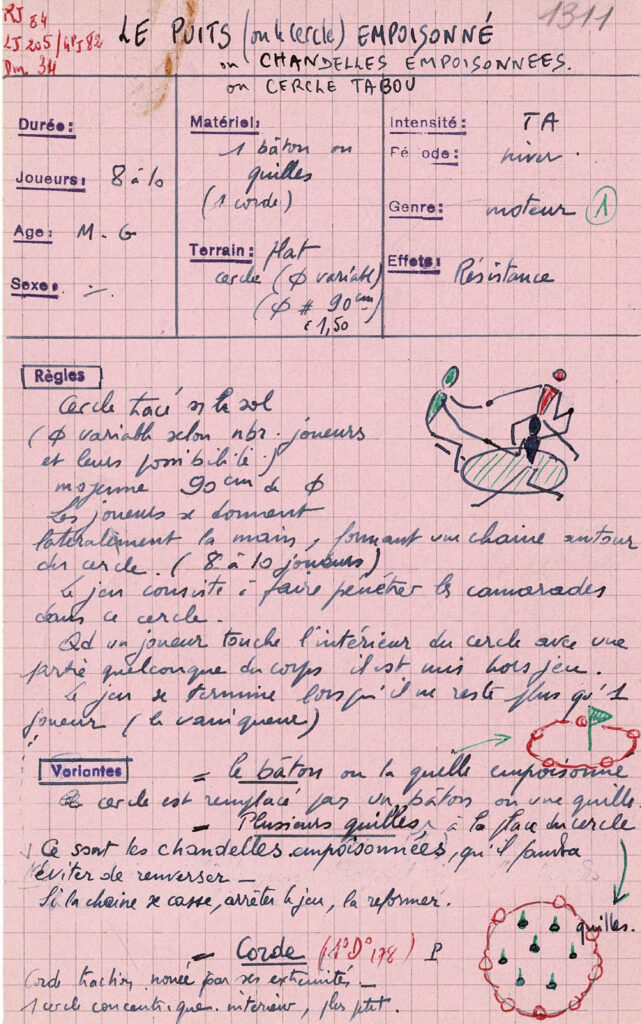 RJ 84
LJ 205/4PJ82
Dm 34
1311
LE PUITS (ou le cercle) EMPOISONNÉ
ou CHANDELLES EMPOISONNEES.
ou CERCLE TABOU
Durée:
Joueurs: 8 à 10
Age: M. G
Sexe: ÷
Matériel:
1 bâton ou
quilles
(1 corde)
Terrain: plat
cercle (Φ variable)
(Φ # 90 cm)
1,50
Intensité: TA
Pé ode: hiver.
Genre: moteur 1
Effets: Résistance
Règles
Cercle tracé s/ le sol
(Φ variable selon nbr. joueurs
et leurs possibilité)
moyenne 90 cm de Φ
Les joueurs se donnent
latéralement la main, formant une chaine autour
du cercle. (8 à 10 joueurs)
Le jeu consiste à faire pénétrer les camarades
dans ce cercle.
Qd un joueur touche l'intérieur du cercle avec une
partie quelconque du corps il est mis hors jeu.
Le jeu se termine lorsqu'il ne reste plus qu'1
joueur (le vainqueur)
Variantes
= le bâton ou la quille empoisonné
cercle est remplacé par un bâton ou une quille
- Plusieurs quilles, à la place du cercle
Ce sont les chandelles empoisonnées, qu'il faudra
éviter de renverser -
Si la chaine se casse, arrêter le jeu, la reformer.
quilles.
= Corde (1°D°178) P
Corde traction nouée par ses extremités -
1 cercle concentrique interieur, plus petit.